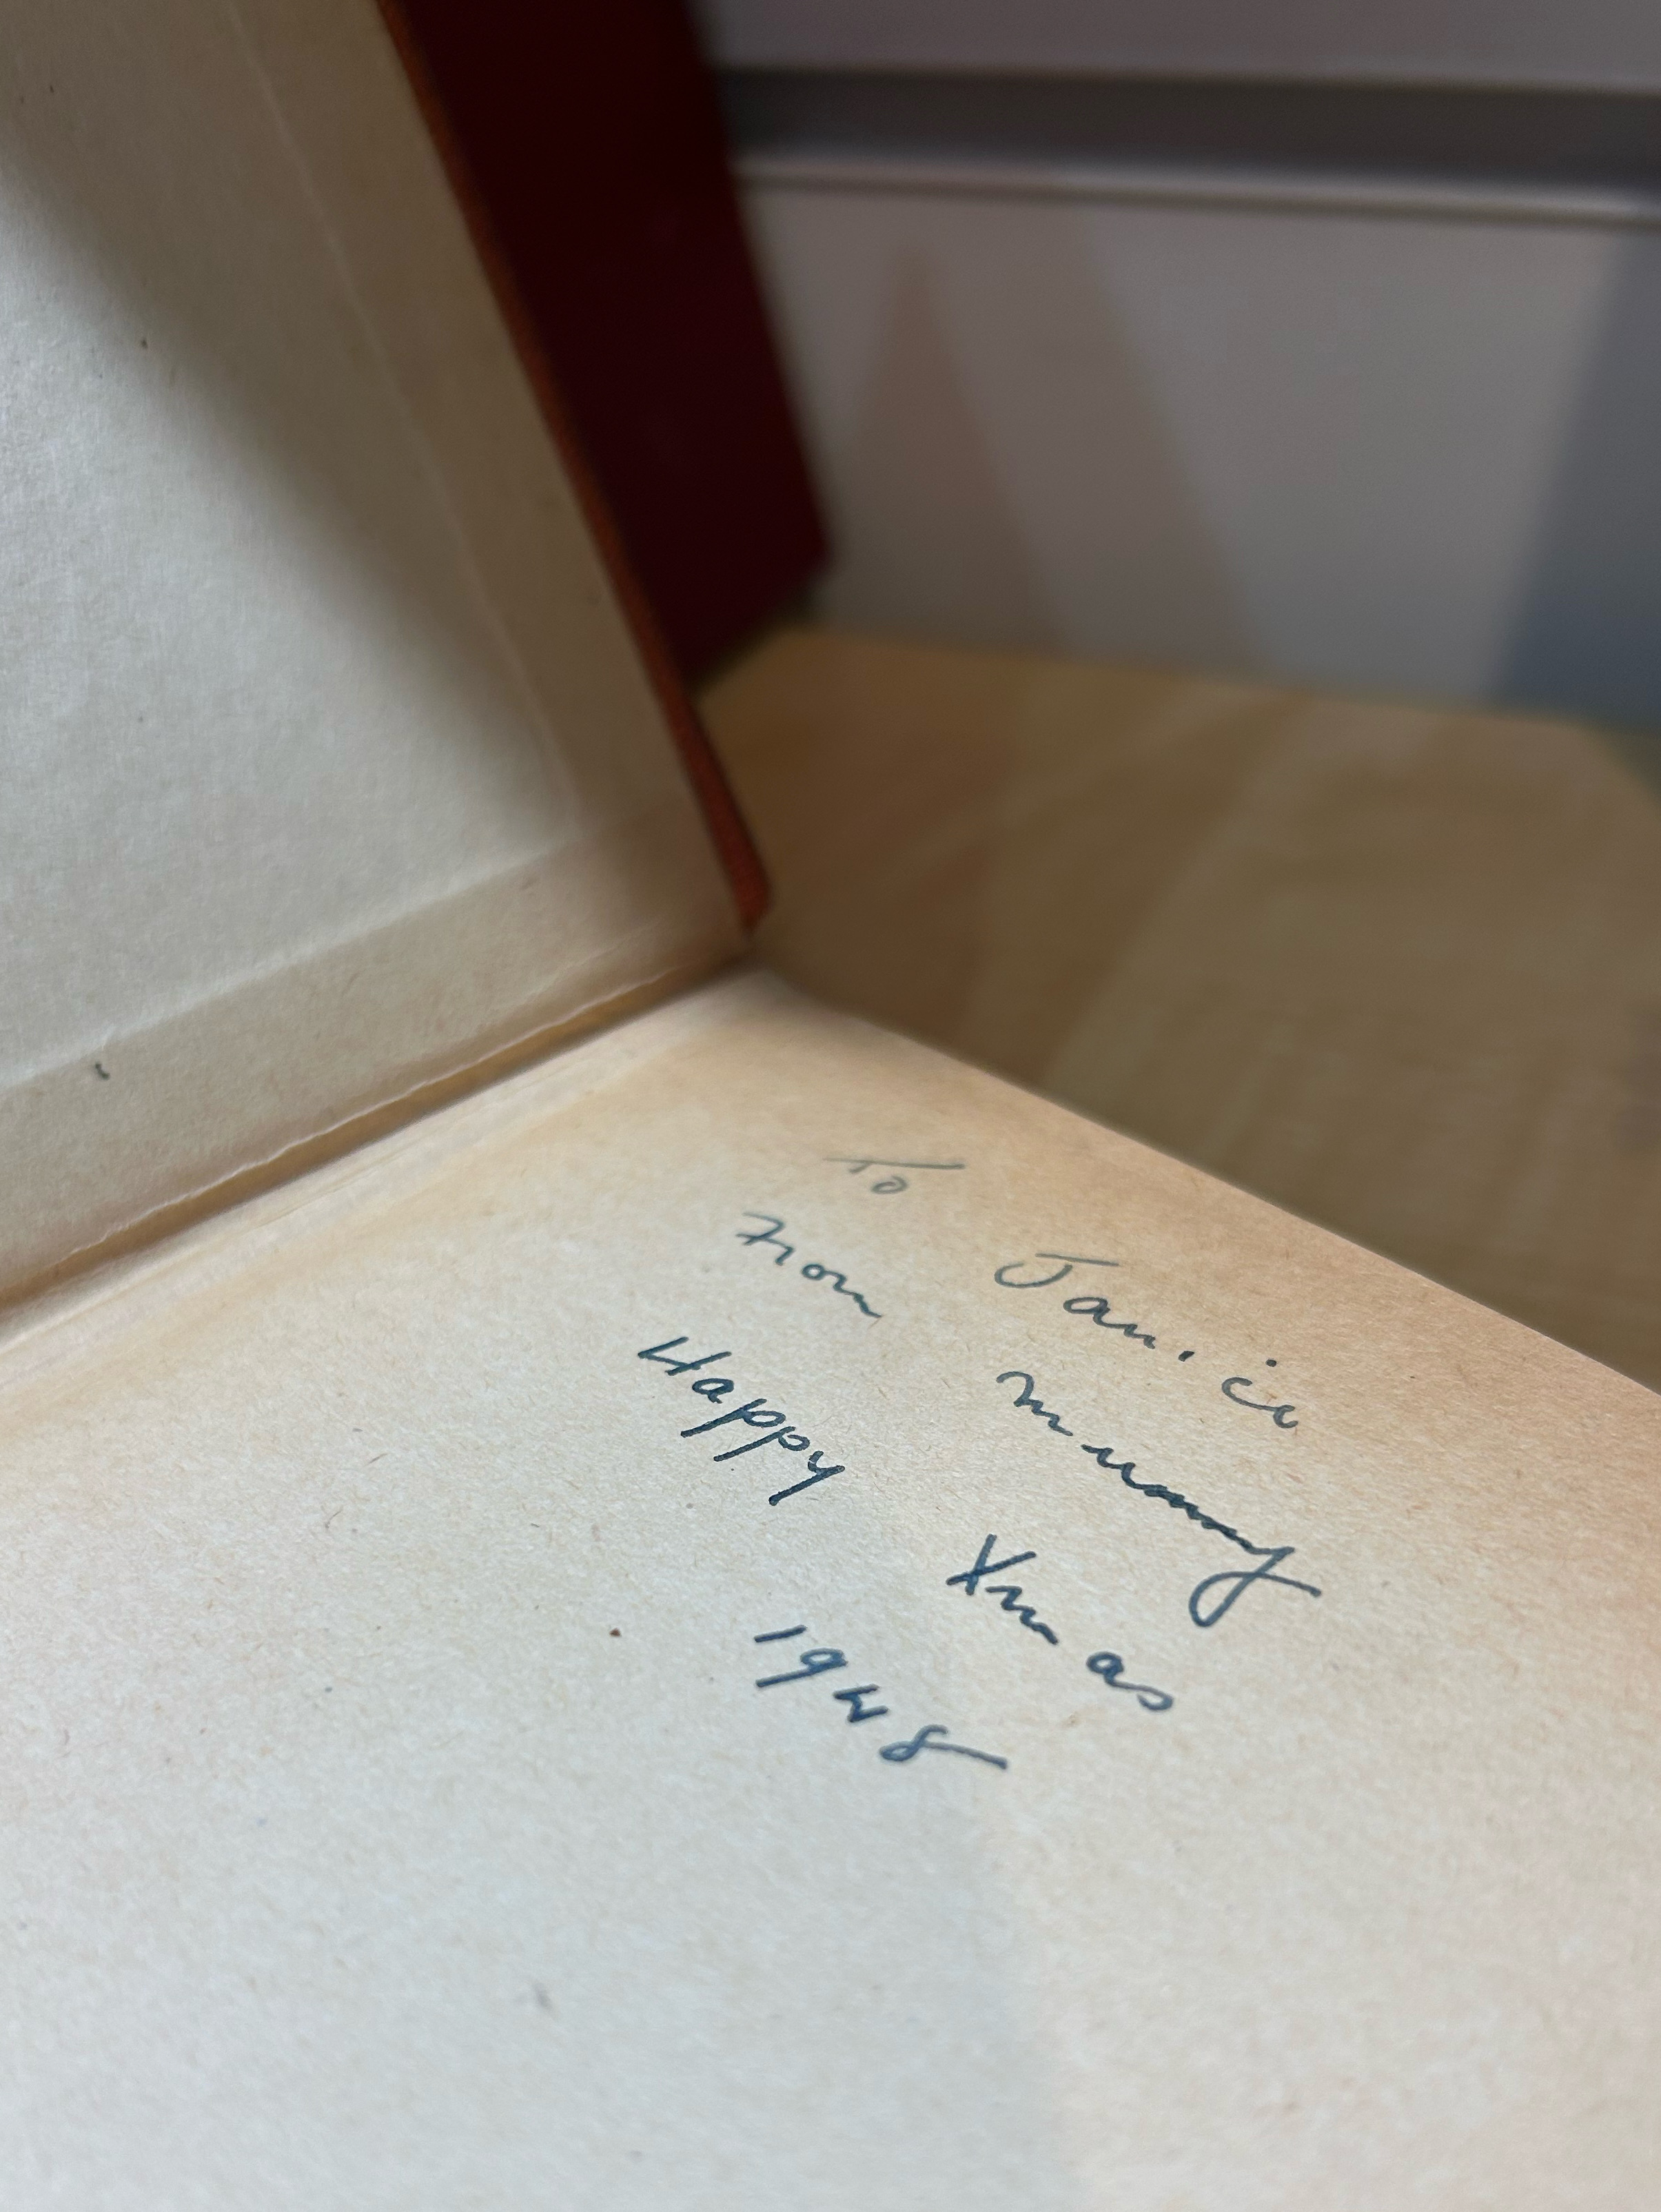 To Janice
From mummy
Happy Xmas
1948